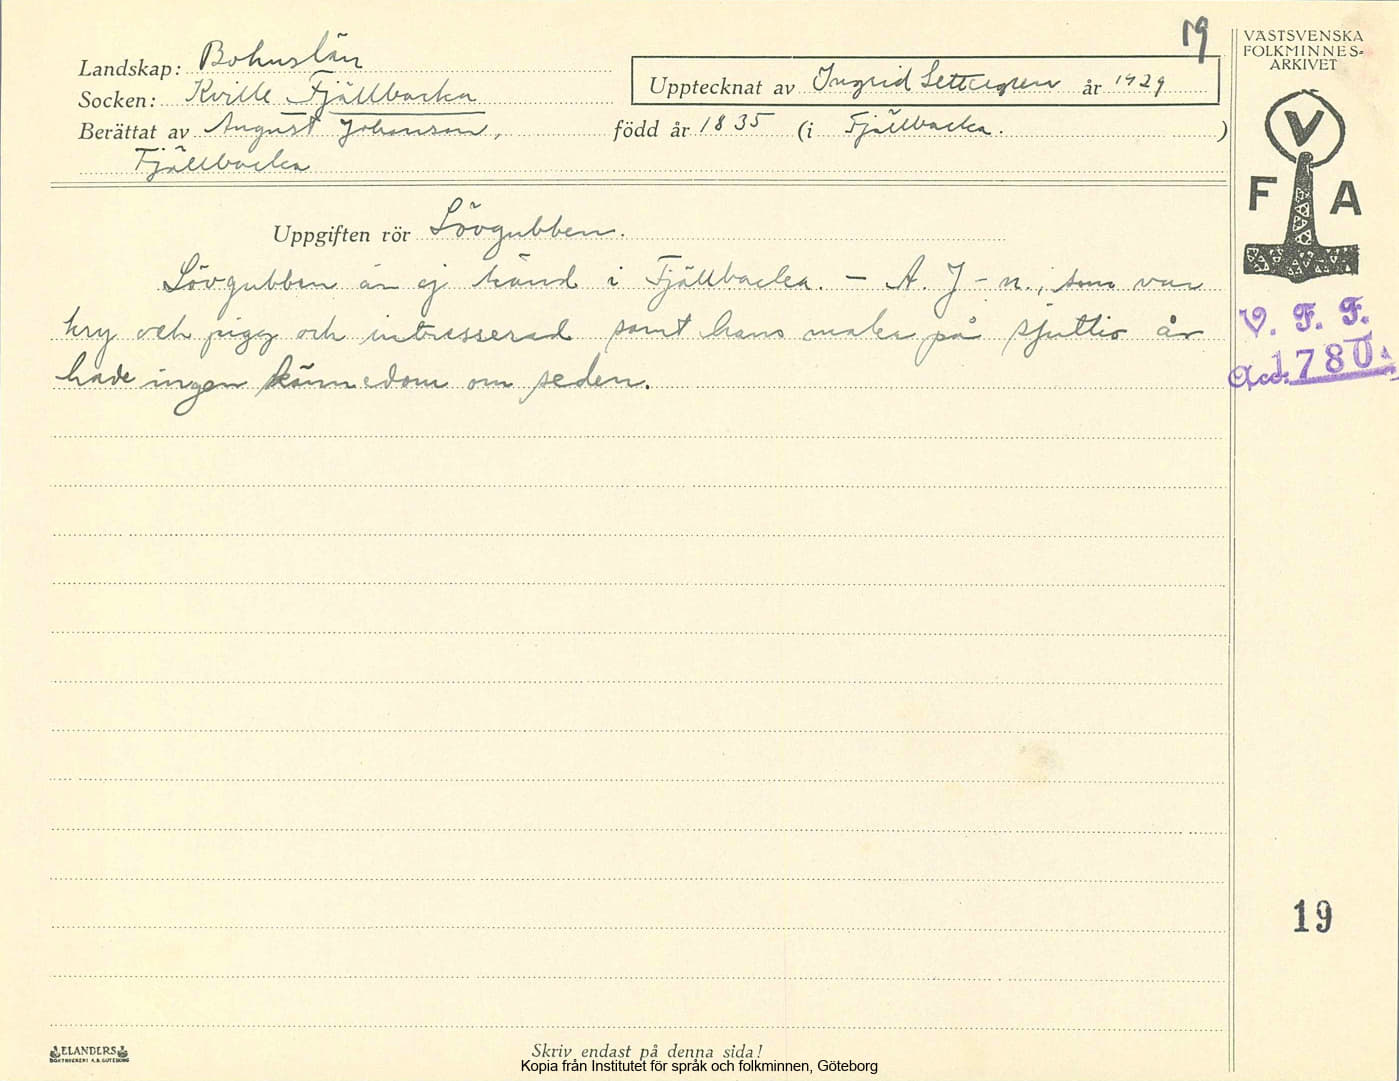 19
Landskap: Bohuslän
Socken: Kville Fjällbacka
Upptecknat av Ingrid år 1929
Berättat av August Johanson, född år 1835 (i Fjällbacka. )
Fjällbacka
VÄSTSVENSKA
FOLKMINNES-
ARKIVET
V
F A
V. F. F.
Acc. 1780.
Uppgiften rör Lövgubben.
Lövgubben är ej känd i Fjällbacka. – A. J-n., som var
kry och pigg och intresserad samt hans maka på sjuttio år
hade ingen kännedom om seden.
19
ELANDERS
BOKTRYCKERI A.B. GÖTEBORG
Skriv endast på denna sida!
Kopia från Institutet för språk och folkminnen, Göteborg